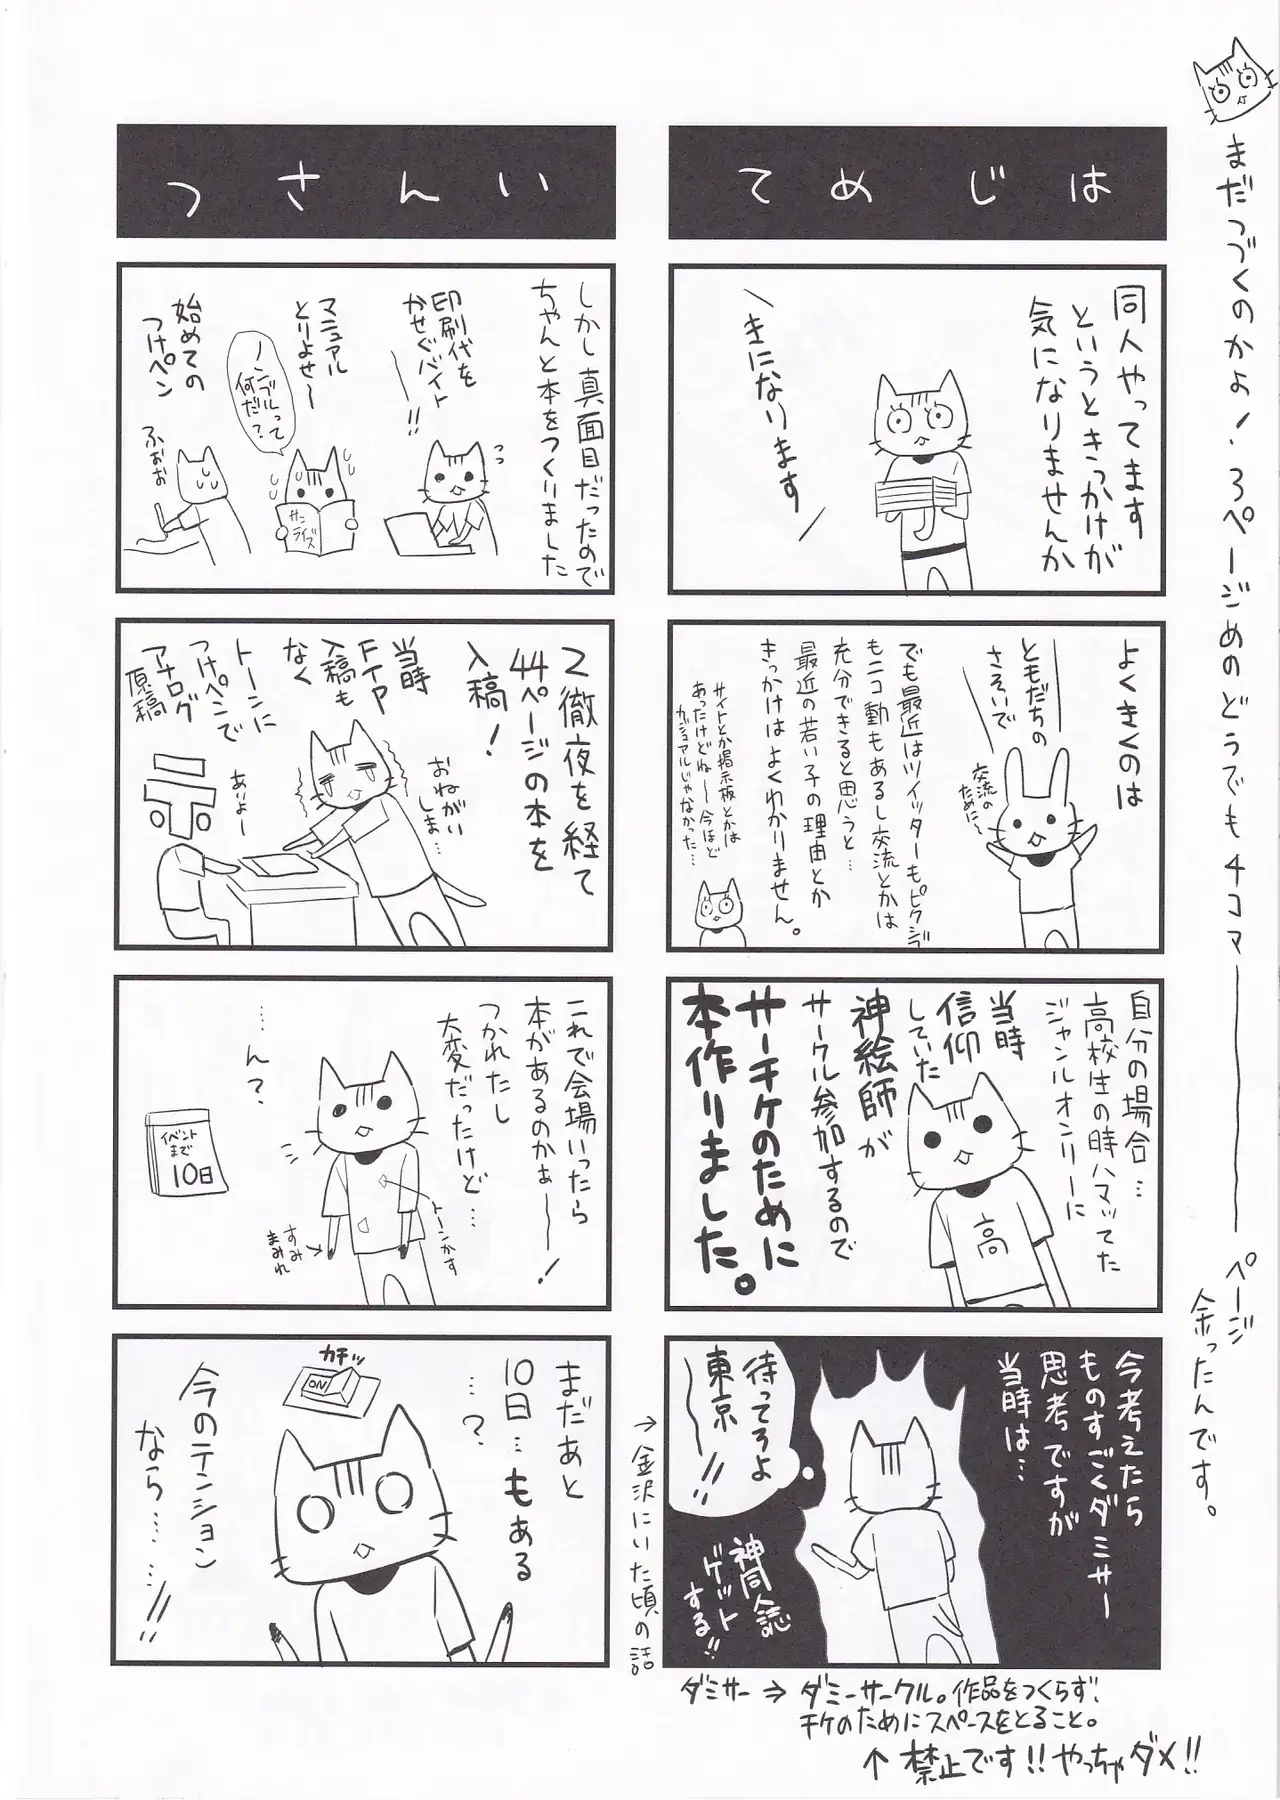 まだつづくのかよ!3ページめのどうでも4コマ――ページ
余ったんです。
はじめて
同人やってます
というときっかけが
気になりませんか
きになります
よくきくのは
ともだちの
さそいで
交流の
ために〜
でも最近はツイッターもピクシブ
もニコ動もあるし交流とかは
充分できると思うと…
最近の若い子の理由とか
きっかけはよくわかりません。
サイトとか掲示板とかは
あったけどね――今ほど
カジュアルじゃなかった…
自分の場合…
高校生の時ハマってた
ジャンルオンリーに
当時
信仰
していた
神絵師が
サークル参加するので
サーチケのために
本作りました。
高
今考えたら
ものすごくダミサー
思考ですが
当時は…
待ってろよ
東京――!!
神同人誌
ゲット
する!!
→金沢にいた頃の話
ダミサー ⇒ ダミーサークル。作品をつくらず、
チケのためにスペースをとること。
↑ 禁止です!!やっちゃダメ!!
いんさつ
しかし真面目だったので
ちゃんと本をつくりました
印刷代を
かせぐバイト
――!!
マニュアル
とりよせ〜
ノンブルって
何だ?
サン
ライズ
始めての
つけペン
ふぉぉ
2徹夜を経て
44ページの本を
入稿!
当時
FTP
入稿も
なく
トーンに
つけペンで
アナログ
原稿
おねがい
しま…
あいよー
これで会場いったら
本があるのかぁ――!
つかれたし
大変だったけど…
……ん?
トーンかす
すみ
まみれ
イベント
まで
10日
まだあと
10日…もある
…?
カチッ
ON
今のテンション
なら……!!